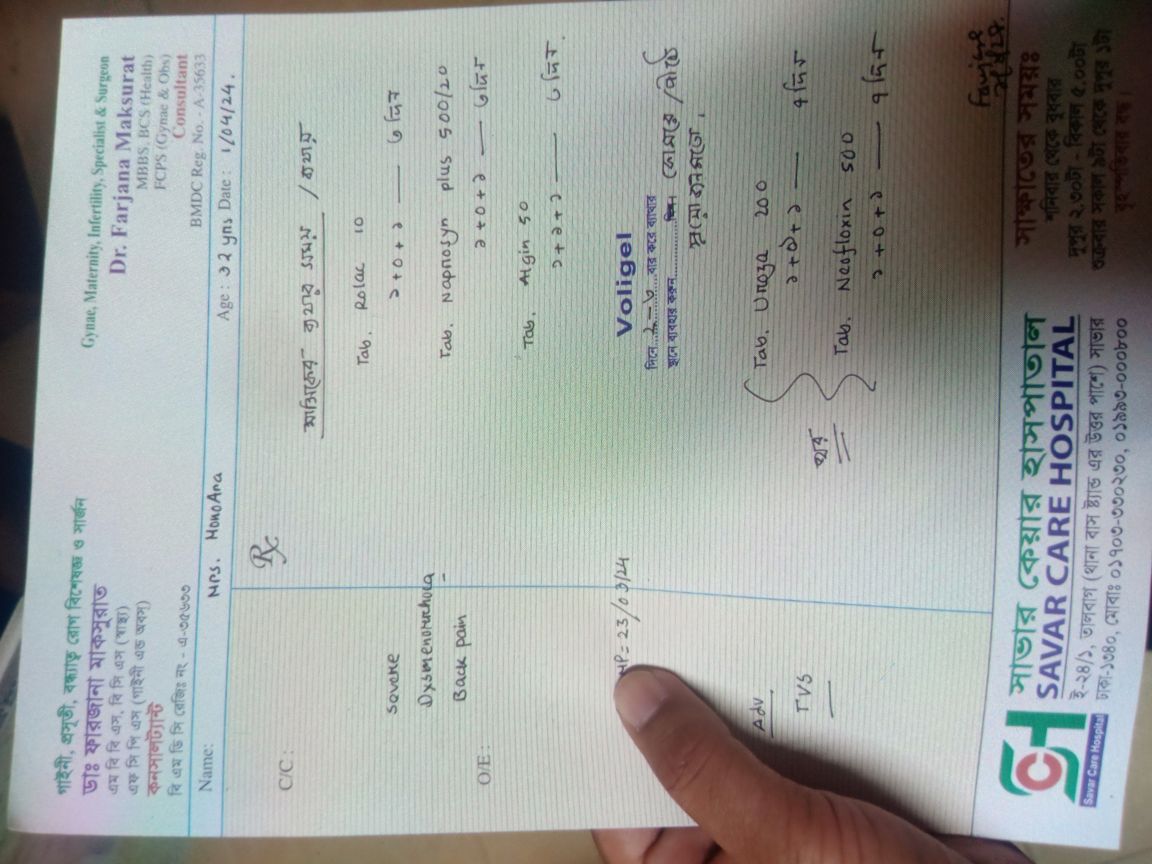 গাইনী, প্রসূতী, বন্ধ্যাত্ব রোগ বিশেষজ্ঞ ও সার্জন
ডাঃ ফারজানা মাকসুরাত
এম বি বি এস, বি সি এস (স্বাস্থ্য)
এফ সি পি এস (গাইনী এন্ড অবস্)
কনসালট্যান্ট
বি এম ডি সি রেজিঃ নং - এ-৩৫৬৩৩
Gynae, Maternity, Infertility, Specialist & Surgeon
Dr. Farjana Maksurat
MBBS, BCS (Health)
FCPS (Gynae & Obs)
Consultant
BMDC Reg. No. - A-35633
Name: Mrs. MonoAra Age : 32 yrs Date : 1/04/24.
C/C :
Severe
Back pain
O/E :
MP= 23/03/24
Adv
TVS
Rx
মাসিকের ব্যথার সময় / ব্যথায়
Tab. Rolac 10
১+০+১ — ৩ দিন
Tab. Naprosyn plus 500/20
১+০+১ — ৩দিন
Tab. Algin 50
১+১+১ — ৩ দিন.
Voligel
দিনে...২-৩...বার করে ব্যাথার
স্থানে ব্যবহার করুন............ কোমরে / পিঠে
প্রয়োজনমতো.
Tab. Uroza 200
১+০+১ — ৭ দিন
Tab. Neofloxin 500
১+০+১ — ৭ দিন
সাভার কেয়ার হাসপাতাল
SAVAR CARE HOSPITAL
ই-২৪/১, তালবাগ (থানা বাস ষ্ট্যান্ড এর উত্তর পাশে) সাভার
ঢাকা-১৩৪০, মোবাঃ ০১৭০৩-৩৩০২৩০, ০১৯৯৩-০০০৮০০
Savar Care Hospital
সাক্ষাতের সময়ঃ
শনিবার থেকে বুধবার
দুপুর ২.৩০টা - বিকাল ৫.০০টা
শুক্রবার সকাল ৯টা থেকে দুপুর ১টা
বৃহস্পতিবার বন্ধ।